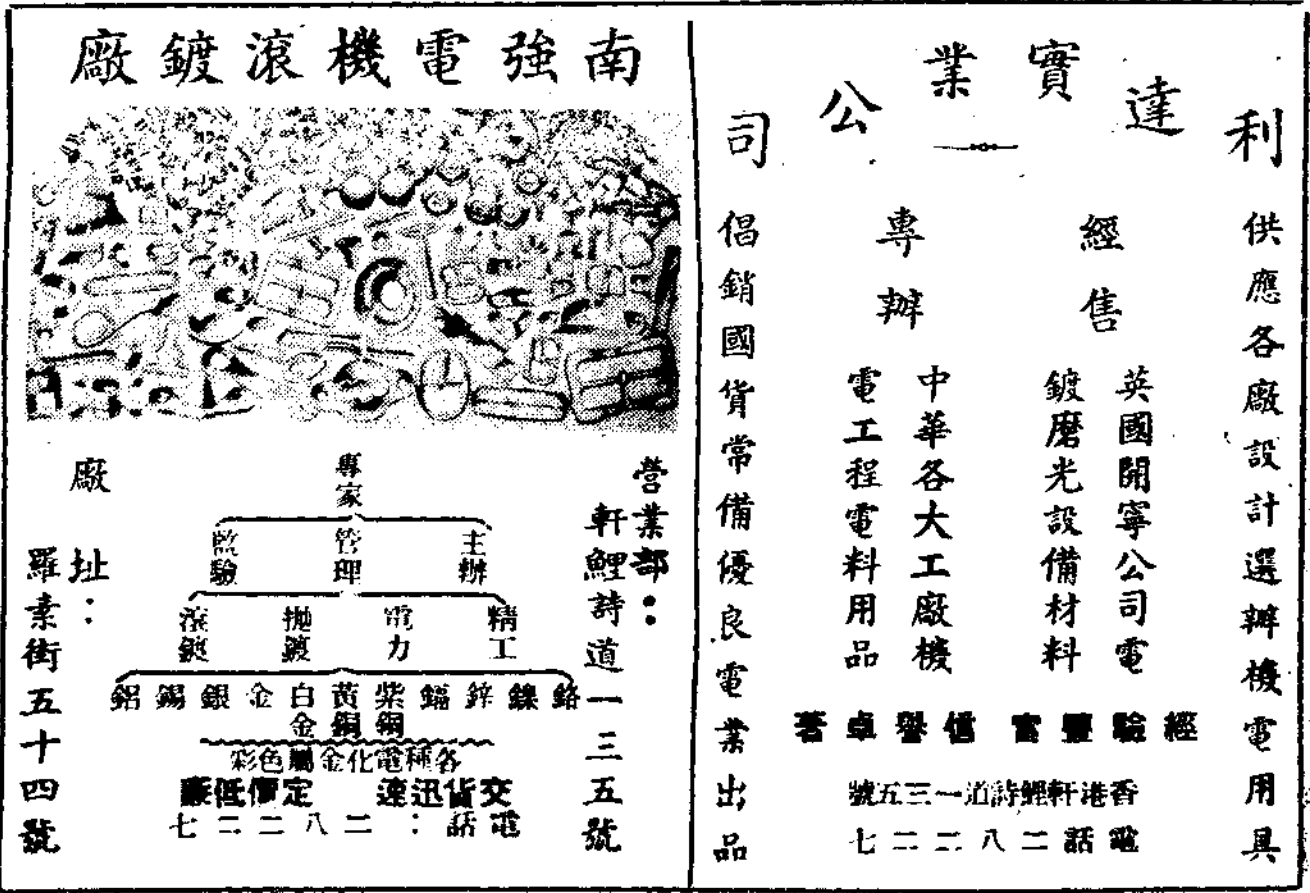 利達實業公司
供應各廠設計選辦機電用具
經售
英國開寧公司電
鍍磨光設備材料
專辦
中華各大工廠機
電工程電料用品
倡銷國貨常備優良電業出品
經驗豐富 信譽卓著
香港軒鯉詩道一三五號
電話二八二二七
南強電機滾鍍廠
營業部：
軒鯉詩道一三五號
專家
主辦
管理
監驗
精工
電力
拋鍍
滾鍍
鉻
鎳
鋅
鎘
紫銅
黃銅
白金
金
銀
錫
鋁
各種電化金屬色彩
交貨迅速 定價低廉
電話：二八二二七
廠址：
羅素街五十四號